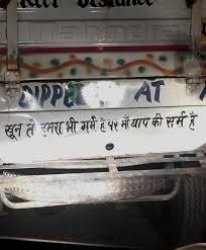 KEEP DISTANCE
DIPPER AT
खून तो हमरा भी गर्म है पर माँ बाप की सर्म है